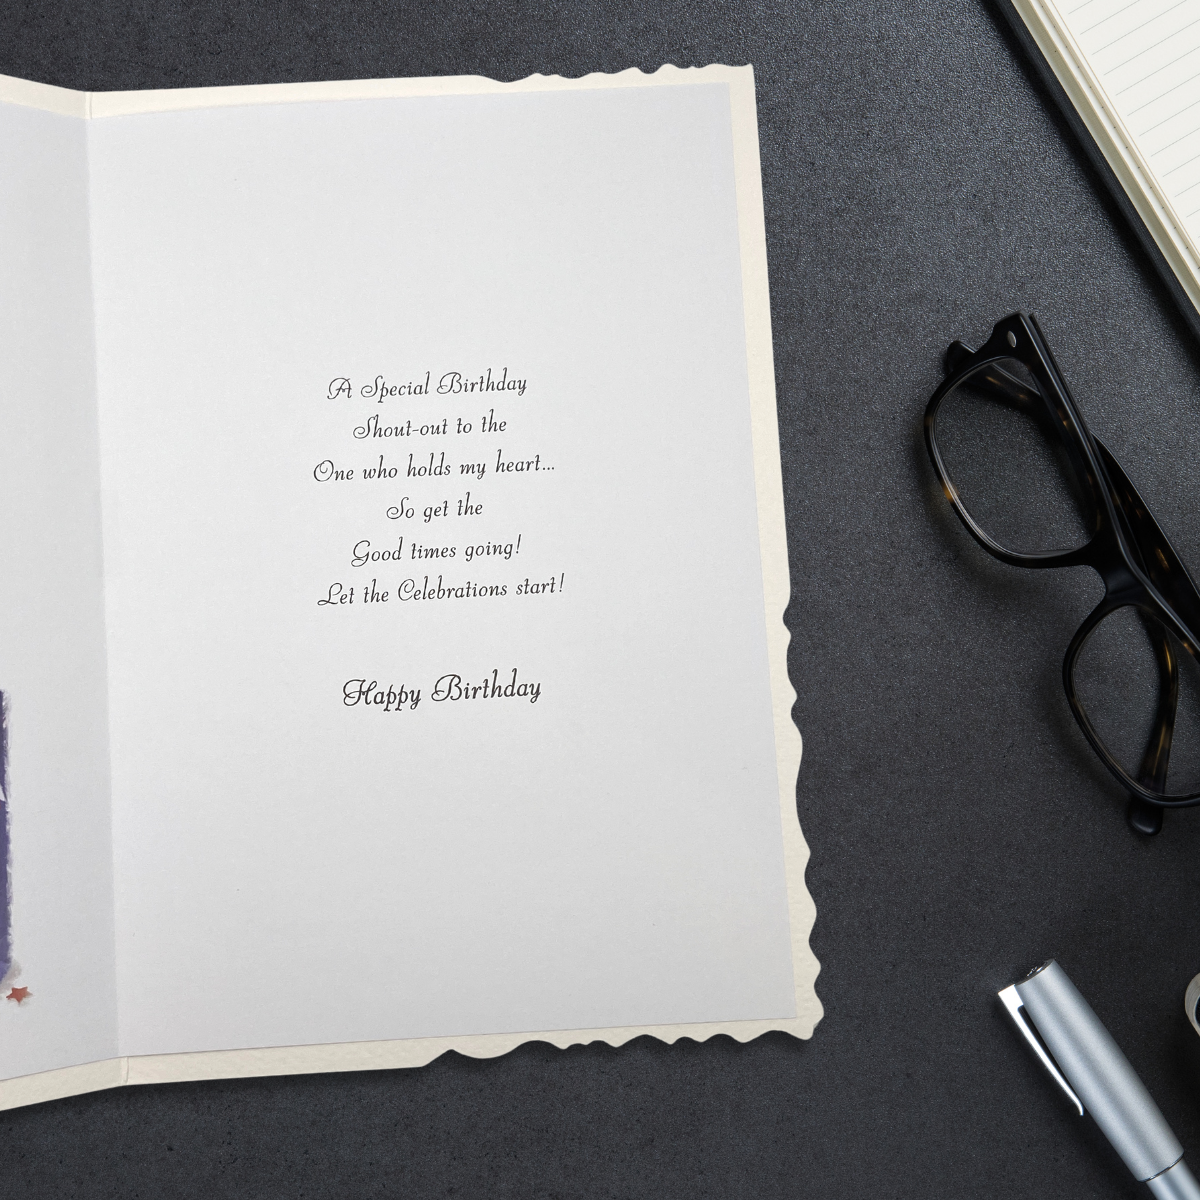 A Special Birthday
Shout-out to the
One who holds my heart...
So get the
Good times going!
Let the Celebrations start!
Happy Birthday